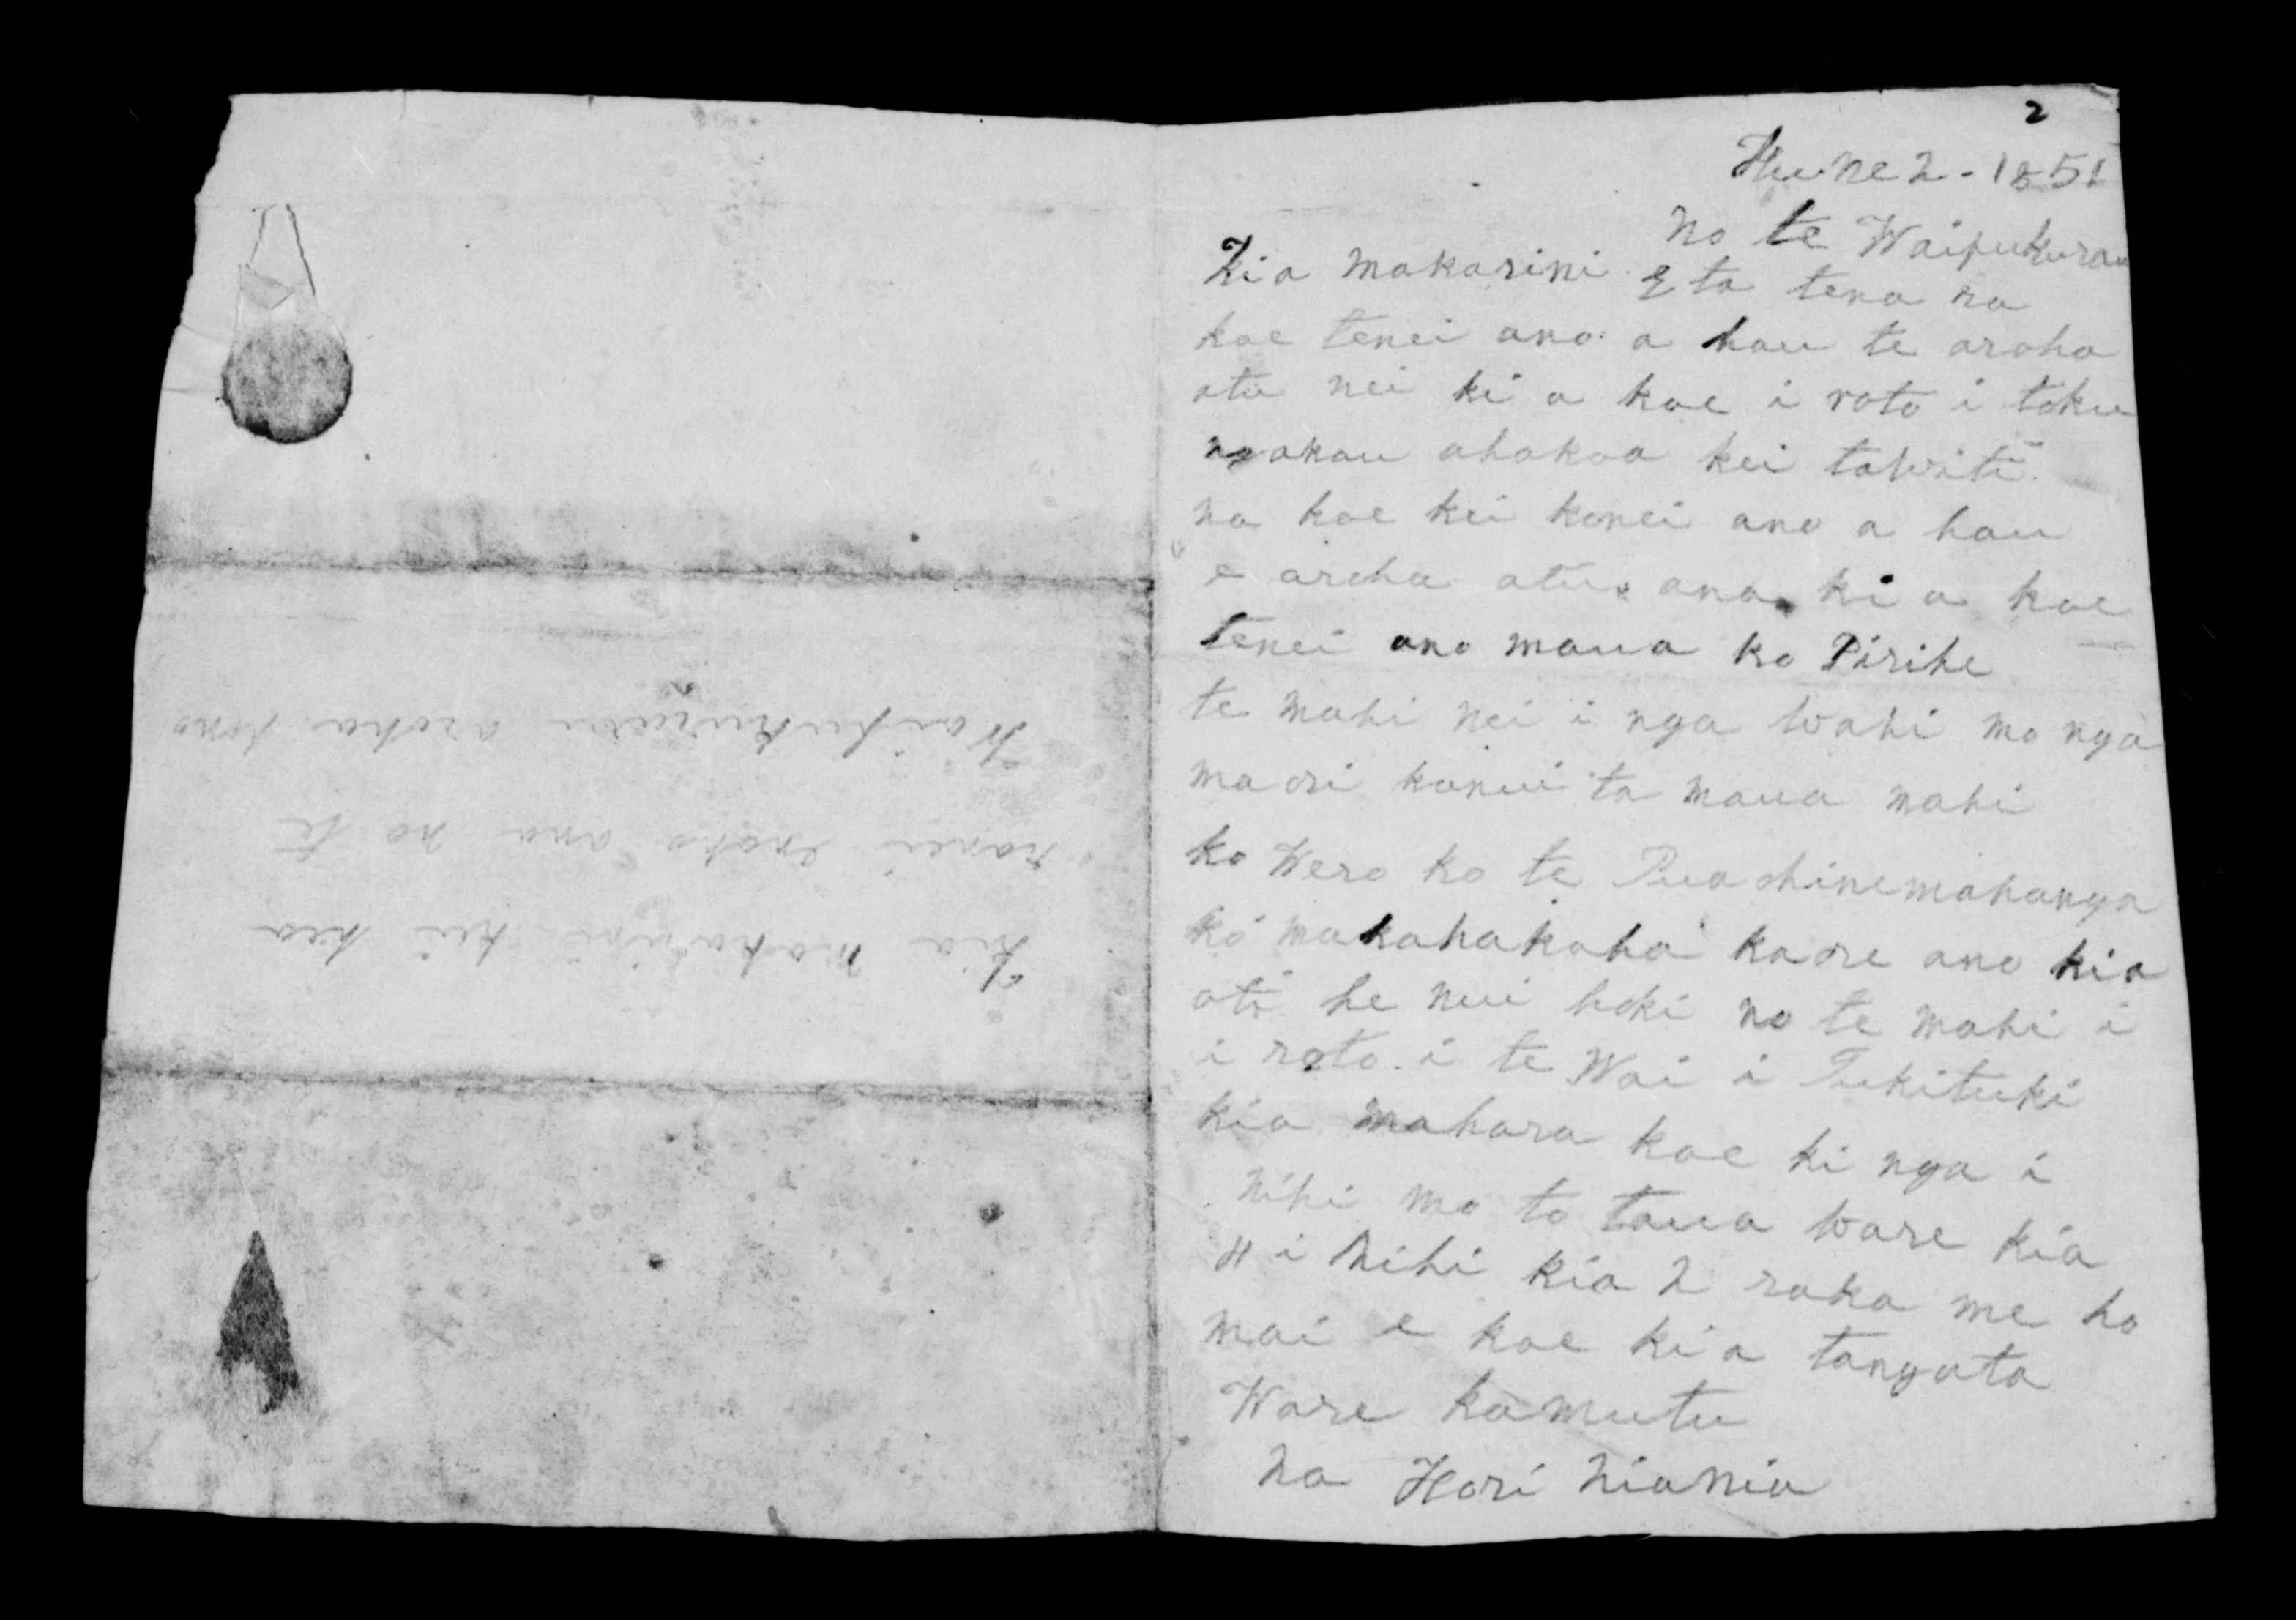 2
Hune 2 - 1851
no te Waipukurau
Kia makarini. E ta tena ra
koe tenei ano a hau te aroha
atu nei ki a koe i roto i toku
ngakau ahakoa kei tawiti
na koe kei konei ano a hau
e aroha atu ana ki a koe
tenei ano maua ko Pirihe
te mahi nei i nga wahi mo nga
maori kanui ta maua mahi
ko Wero ko te Puaohinemahanga
ko makahakaha kaore ano kia
oti he nui hoki no te mahi i
i roto i te Wai i Tukituki
kia mahara koe ki nga i
nihi mo to taua ware kia
4 i nihi kia 2 raka me ho
mai e koe kia tangata
Ware kamutu
na Hori Niania
Kia Makarini kei hea
ranei enoho ana no te
Waipukurau aroha